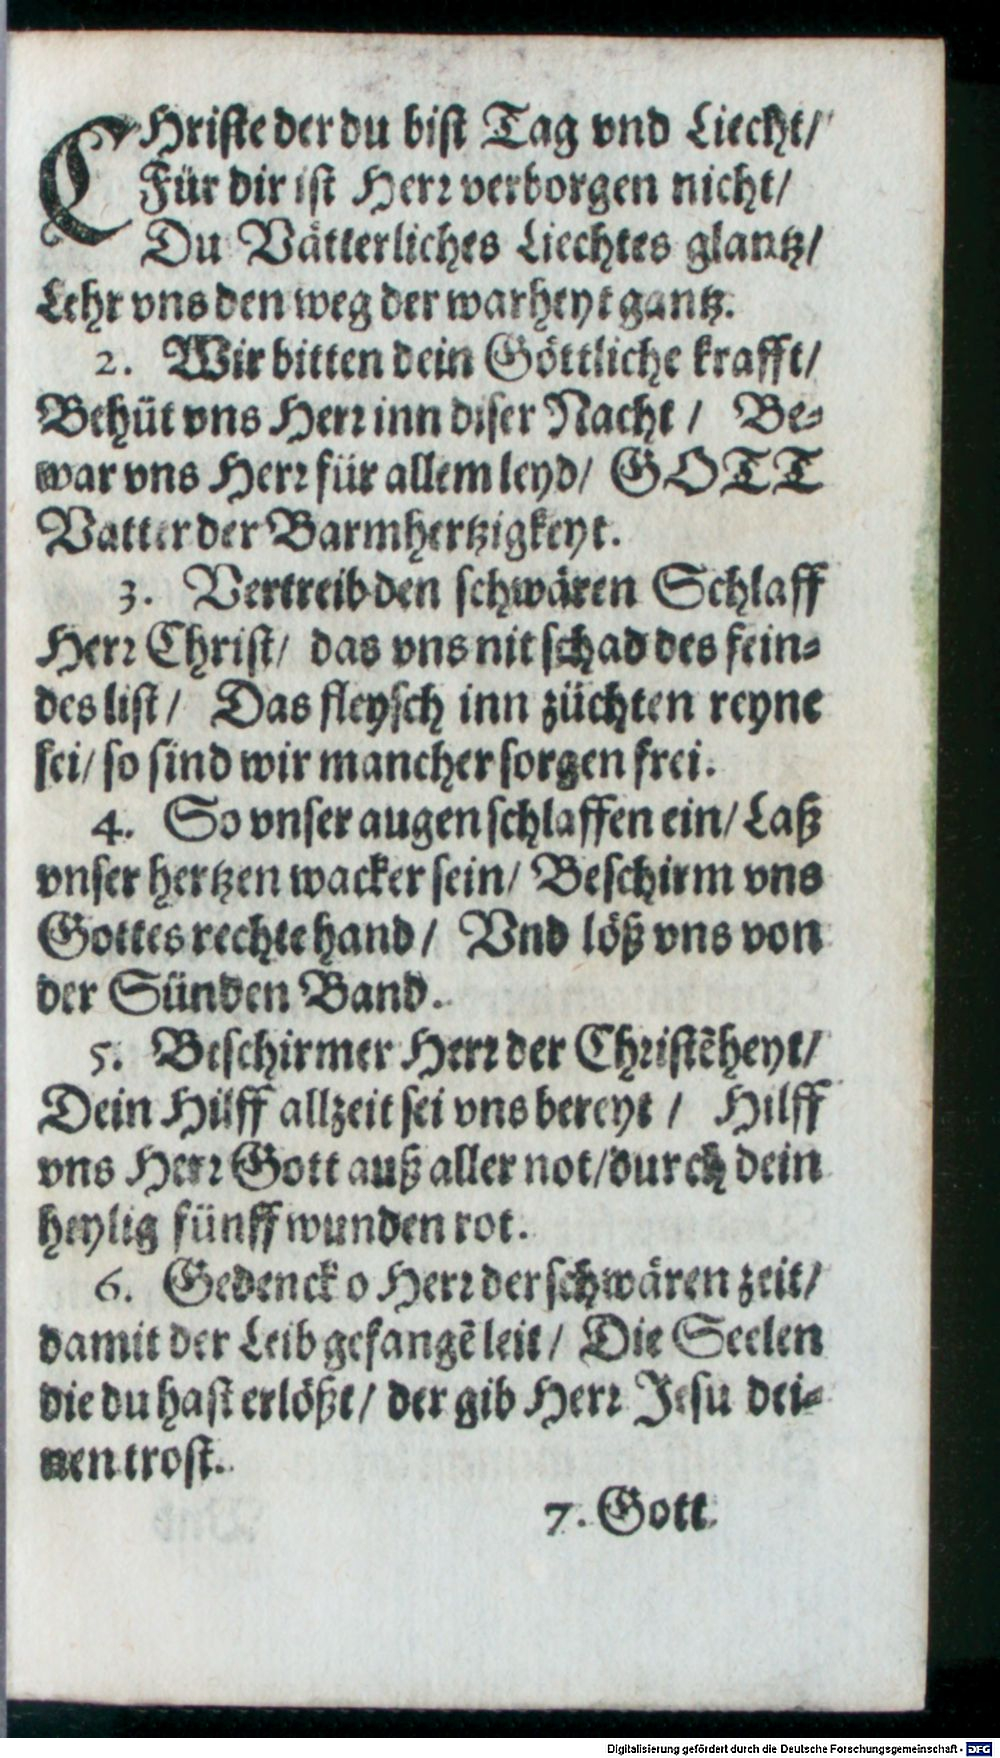 CHriste der du bist Tag vnd Liecht/
Für dir ist Herr verborgen nicht/
Du Vätterliches Liechtes glantz/
Lehr vns den weg der warheyt gantz.
2. Wir bitten dein Göttliche krafft/
Behüt vns Herr inn diser Nacht / Be-
war vns Herr für allem leyd/ GOTT
Vatter der Barmhertzigkeyt.
3. Vertreib den schwären Schlaff
Herr Christ/ das vns nit schad des fein-
des list / Das fleysch inn züchten reyne
sei/ so sind wir mancher sorgen frei.
4. So vnser augen schlaffen ein/ Laß
vnser hertzen wacker sein/ Beschirm vns
Gottes rechte hand / Vnd löß vns von
der Sünden Band.
5. Beschirmer Herr der Christẽheyt/
Dein Hilff allzeit sei vns bereyt / Hilff
vns Herr Gott auß aller not/durch dein
heylig fünff wunden rot.
6. Gedenck o Herr der schwären zeit/
damit der Leib gefangẽ leit / Die Seelen
die du hast erlößt/ der gib Herr Jesu dei-
nen trost.
7. Gott
Digitalisierung gefördert durch die Deutsche Forschungsgemeinschaft - DFG